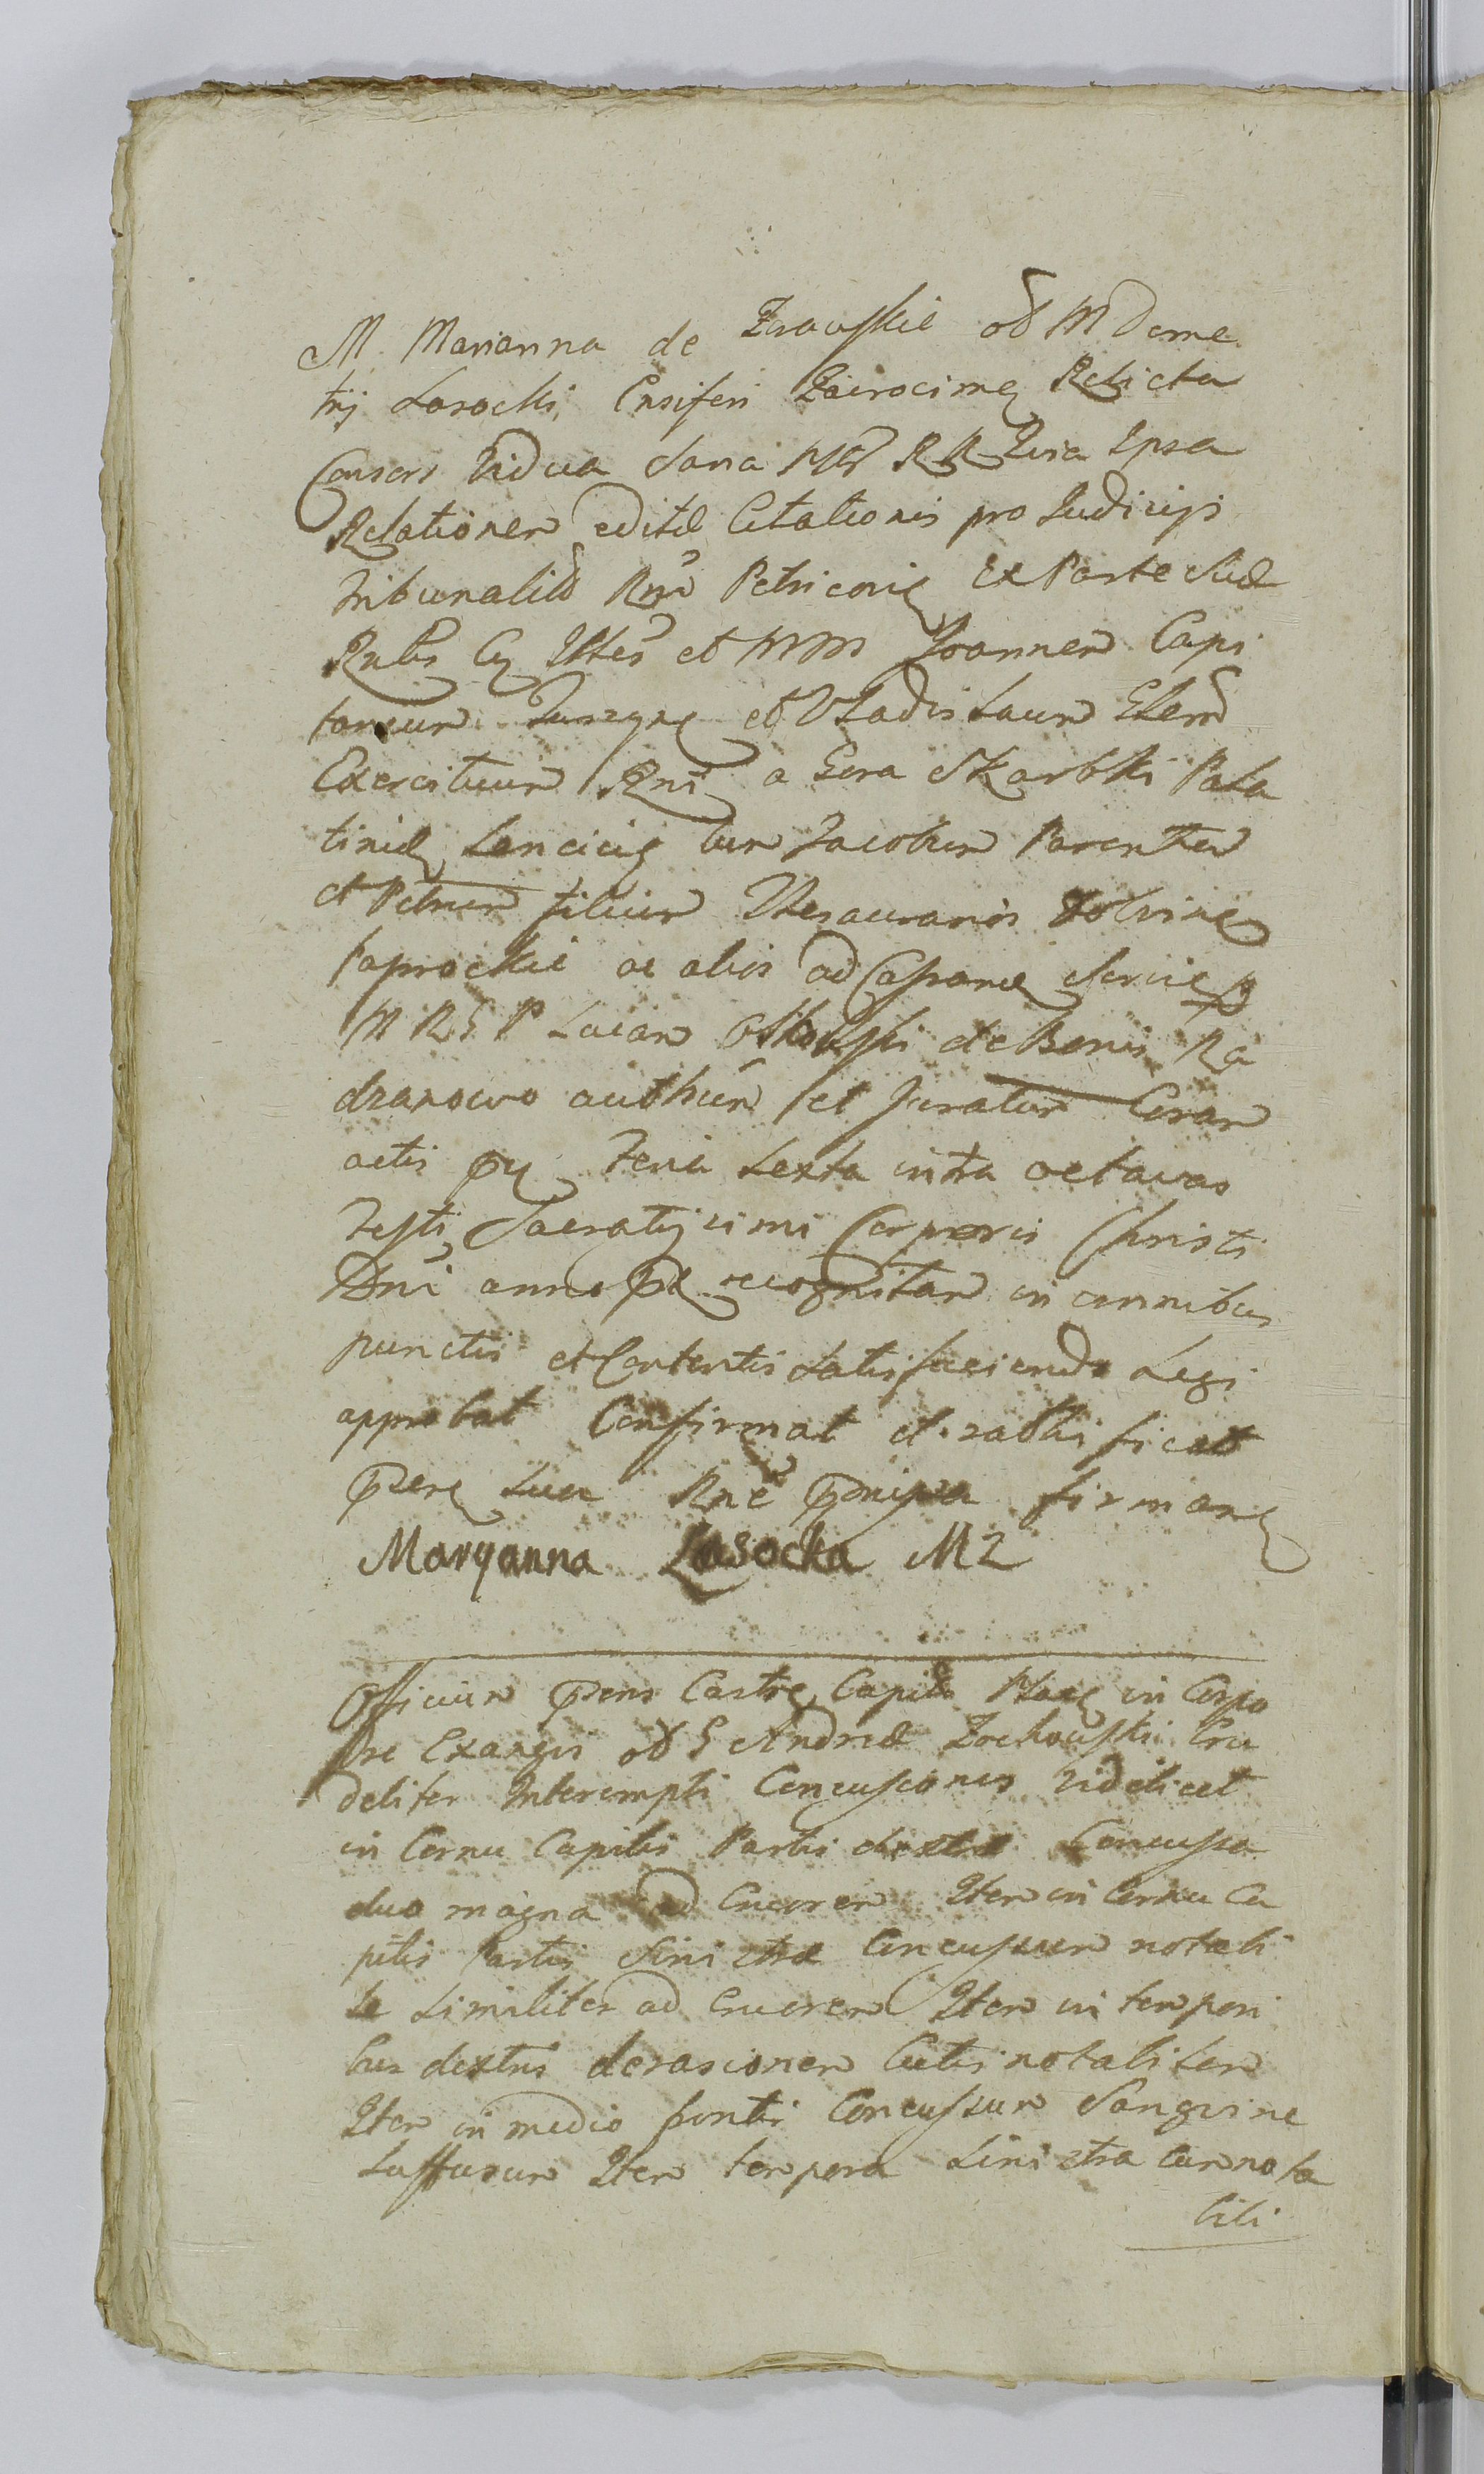 M. Marianna de Zrawskie olȝ M Deme
trij Lasocki, Ensiferi Zawrocimeȝ Relicta
Consors Vidua Sana Mȝ R R Quia Ipsa
Relationem editæ Citationis pro Judicijs
Tribunalibȝ Rni Petricouieȝ Ex Parte Suæ
Rntis Cȝ Illres et MM Joannem Capi
taneum et Vladislaum
Exercituum Rni a Gora Skarbki Pala
tinidȝ Lancicieȝ tum Jacobum Parentem
et Petrum filium Thesaurarios
Paprockie ac alios ad Servieȝ
M R G P Lucam de Bonis Ra
dzanowo authum et Juratum Coram
actis pȝ Feria Sexta intra octavas
Festi Sacratissimi Corporis Christi
Dni anno pȝ recognitam in omnibus
punctis et Contentis Satisfaciendo Legi
approbat Confirmat et ratthificat
pȝere Sua Rne firmaneȝ
Maryanna Łasocka M2
Officium pȝens Castreȝ Capitis in Corpo
re Exangvi olȝ G Andreæ Zochowski Cru
deliter Interempti Concussiones Videlicet
in Cornu Capitis Partis dextræ Concussa
duo magna ad Cruorem Item in Cornu Ca
pitis Partis Sinistræ Concussum notabi
le Similiter ad Cruorem Item in tempori
bus dextris derasionem Cutis notabilem
Item in medio frontis Concussum Sangvine
Suffusum Item tempora Sinistra cum nota
bili